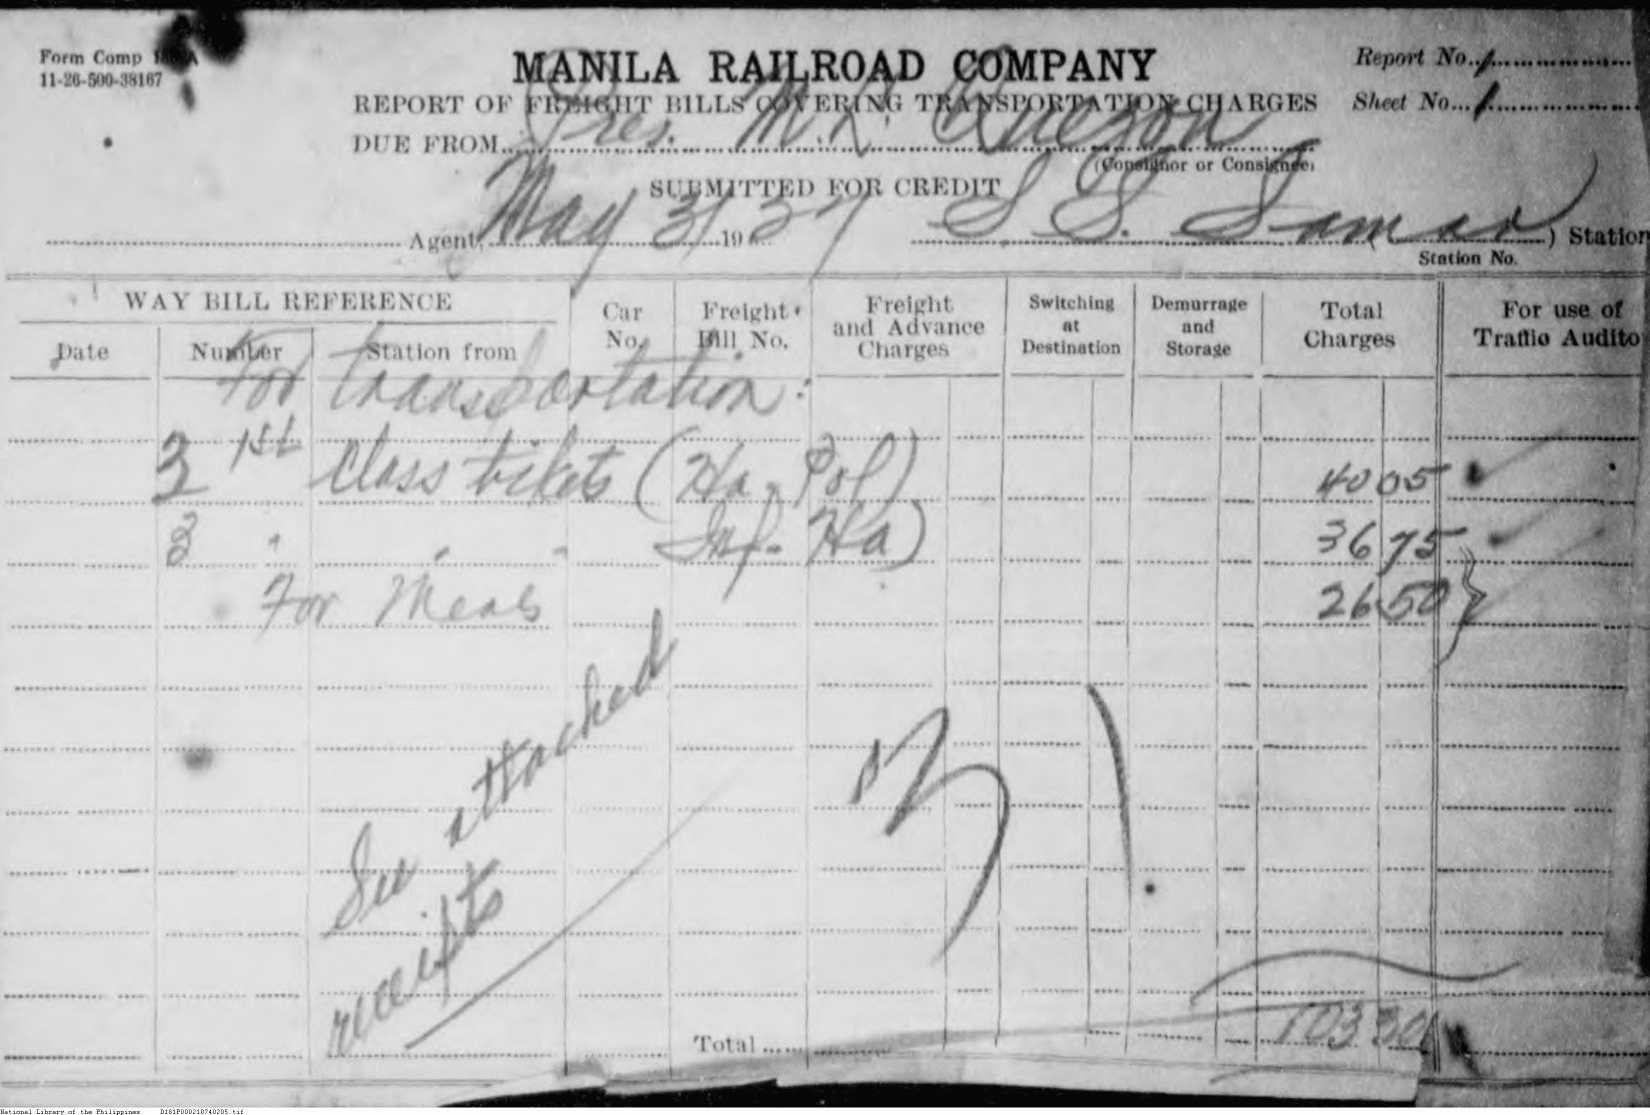 Form Comp
11-26-500-38167
MANILA RAILROAD COMPANY
Report No. 1
REPORT OF FREIGHT BILLS COVERING TRANSPORTATION CHARGES
Sheet No. 1
DUE FROM Pres. M. L. Quezon
(Consignor or Consignee)
SUBMITTED FOR CREDIT
Agent, May 31 1937 S S. Samar ) Station
Station No.
WAY BILL REFERENCE
Date Number Station from Car No. Freight Bill No. Freight and Advance Charges Switching at Destination Demurrage and Storage Total Charges For use of Traffic Audito
For transportation:
3 1st class tikets (Ha. Pol) 40 05
3 " " " Ha) 36 75
For Meals 26 50
See attached
receipts
Total 103 30
National Library of the Philippines D181P000210740205.tif